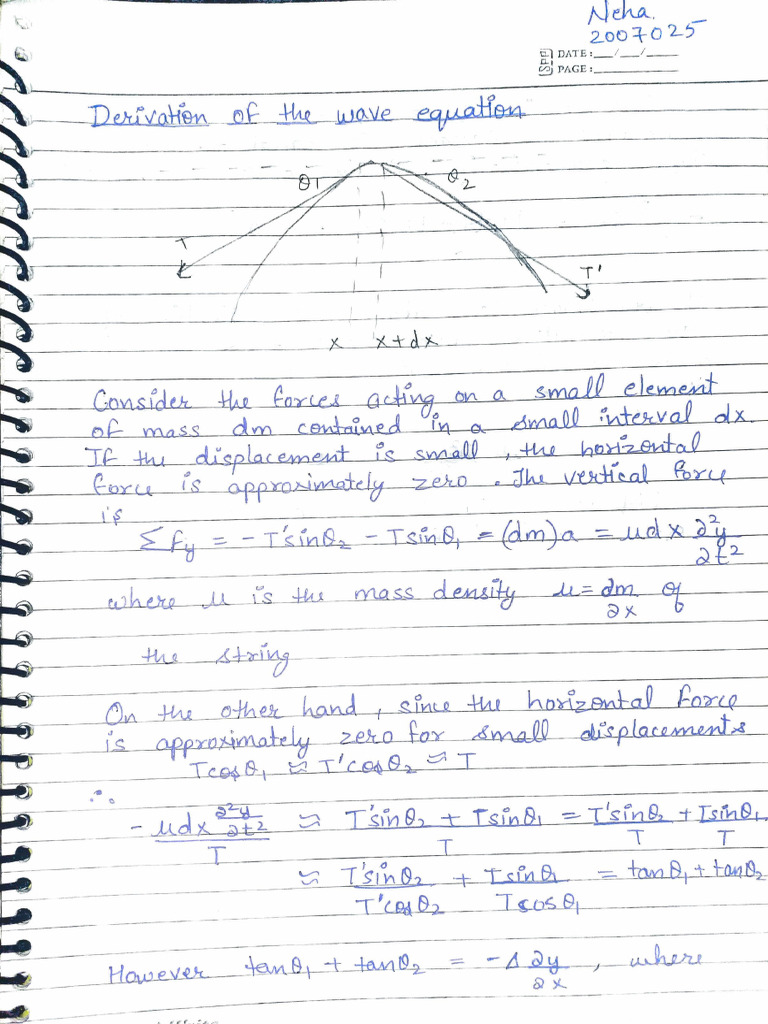 Neha.
2007025
DATE: __/__/____
PAGE: ________
Derivation of the wave equation
θ1 θ2
T T'
x x+dx
Consider the forces acting on a small element
of mass dm contained in a small interval dx.
If the displacement is small, the horizontal
force is approximately zero. The vertical force
is
Σfy = -T'sinθ2 - Tsinθ1 = (dm)a = μdx ∂²y/∂t²
where μ is the mass density μ = ∂m/∂x of
the string
On the other hand, since the horizontal force
is approximately zero for small displacements
Tcosθ1 ≈ T'cosθ2 ≈ T
∴
-μdx ∂²y/∂t² / T ≈ T'sinθ2 + Tsinθ1 / T = T'sinθ2 / T + Tsinθ1 / T
≈ T'sinθ2 / T'cosθ2 + Tsinθ1 / Tcosθ1 = tanθ1 + tanθ2
However tanθ1 + tanθ2 = -Δ ∂y/∂x, where